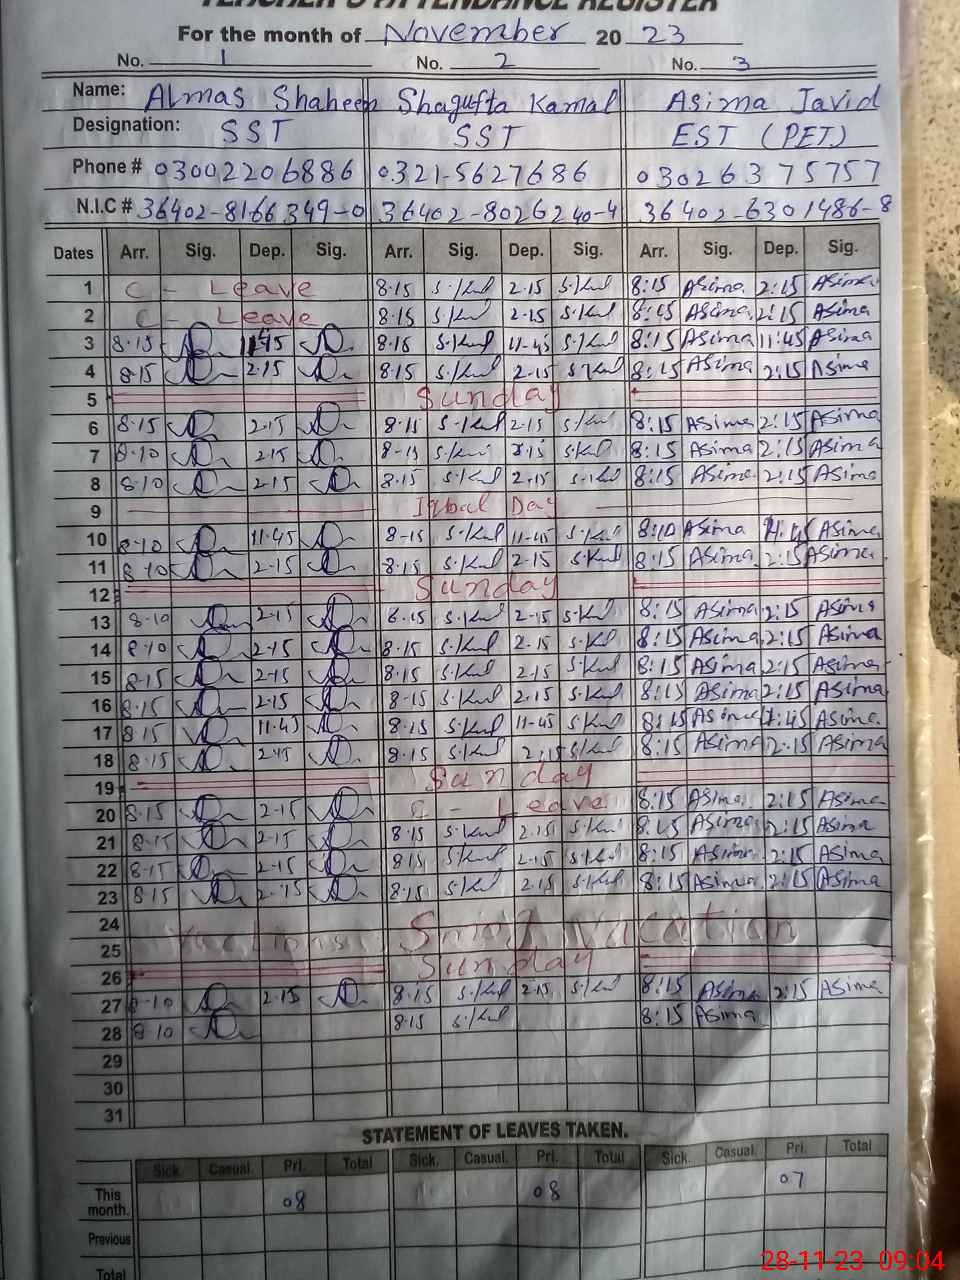 TEACHER'S ATTENDANCE REGISTER
For the month of November 20 23
No. 1 No. 2 No. 3
Name: Almas Shaheen Shagufta Kamal Asima Javid
Designation: SST SST EST (PET)
Phone # 03002206886 0321-5627686 03026375757
N.I.C # 36402-8166349-0 36402-8026240-4 36402-6301486-8
Dates Arr. Sig. Dep. Sig. Arr. Sig. Dep. Sig. Arr. Sig. Dep. Sig.
1 C - Leave 8.15 2.15 8:15 Asima 2:15 Asima
2 C - Leave 8.15 2.15 8:15 Asima 2:15 Asima
3 8.15 11.45 8.15 11-45 8:15 Asima 11:45 Asima
4 8.15 2.15 8.15 2.15 8:15 Asima 2:15 Asima
5 Sunday
6 8.15 2.15 8.15 2.15 8:15 Asima 2:15 Asima
7 8.10 2.15 8-15 2.15 8:15 Asima 2:15 Asima
8 8.10 2.15 8.15 2.15 8:15 Asima 2:15 Asima
9 Iqbal Day
10 8.10 11.45 8-15 11-45 8:10 Asima 11:45 Asima
11 8.10 2.15 8.15 2.15 8:15 Asima 2:15 Asima
12 Sunday
13 8-10 2-15 8.15 2-15 8:15 Asima 2:15 Asima
14 8.10 2-15 8.15 2.15 8:15 Asima 2:15 Asima
15 8.15 2.15 8.15 2.15 8:15 Asima 2:15 Asima
16 8.15 2.15 8-15 2.15 8:15 Asima 2:15 Asima
17 8.15 11.45 8.15 11-45 8:15 Asima 11:45 Asima
18 8.15 2.15 8.15 2.15 8:15 Asima 2:15 Asima
19 Sunday
20 8.15 2-15 C - Leave 8:15 Asima 2:15 Asima
21 8.15 2-15 8.15 2.15 8:15 Asima 2:15 Asima
22 8-15 2-15 8.15 2-15 8:15 Asima 2:15 Asima
23 8.15 2-15 8.15 2.15 8:15 Asima 2:15 Asima
24 Smog Vacation
25
26 Sunday
27 8-10 2.15 8.15 2.15 8:15 Asima 2:15 Asima
28 8.10 8.15 8:15 Asima
29
30
31
STATEMENT OF LEAVES TAKEN.
Sick. Casual. Pri. Total Sick. Casual. Pri. Total Sick. Casual. Pri. Total
This month. 08 08 07
Previous
Total
28-11-23 09:04